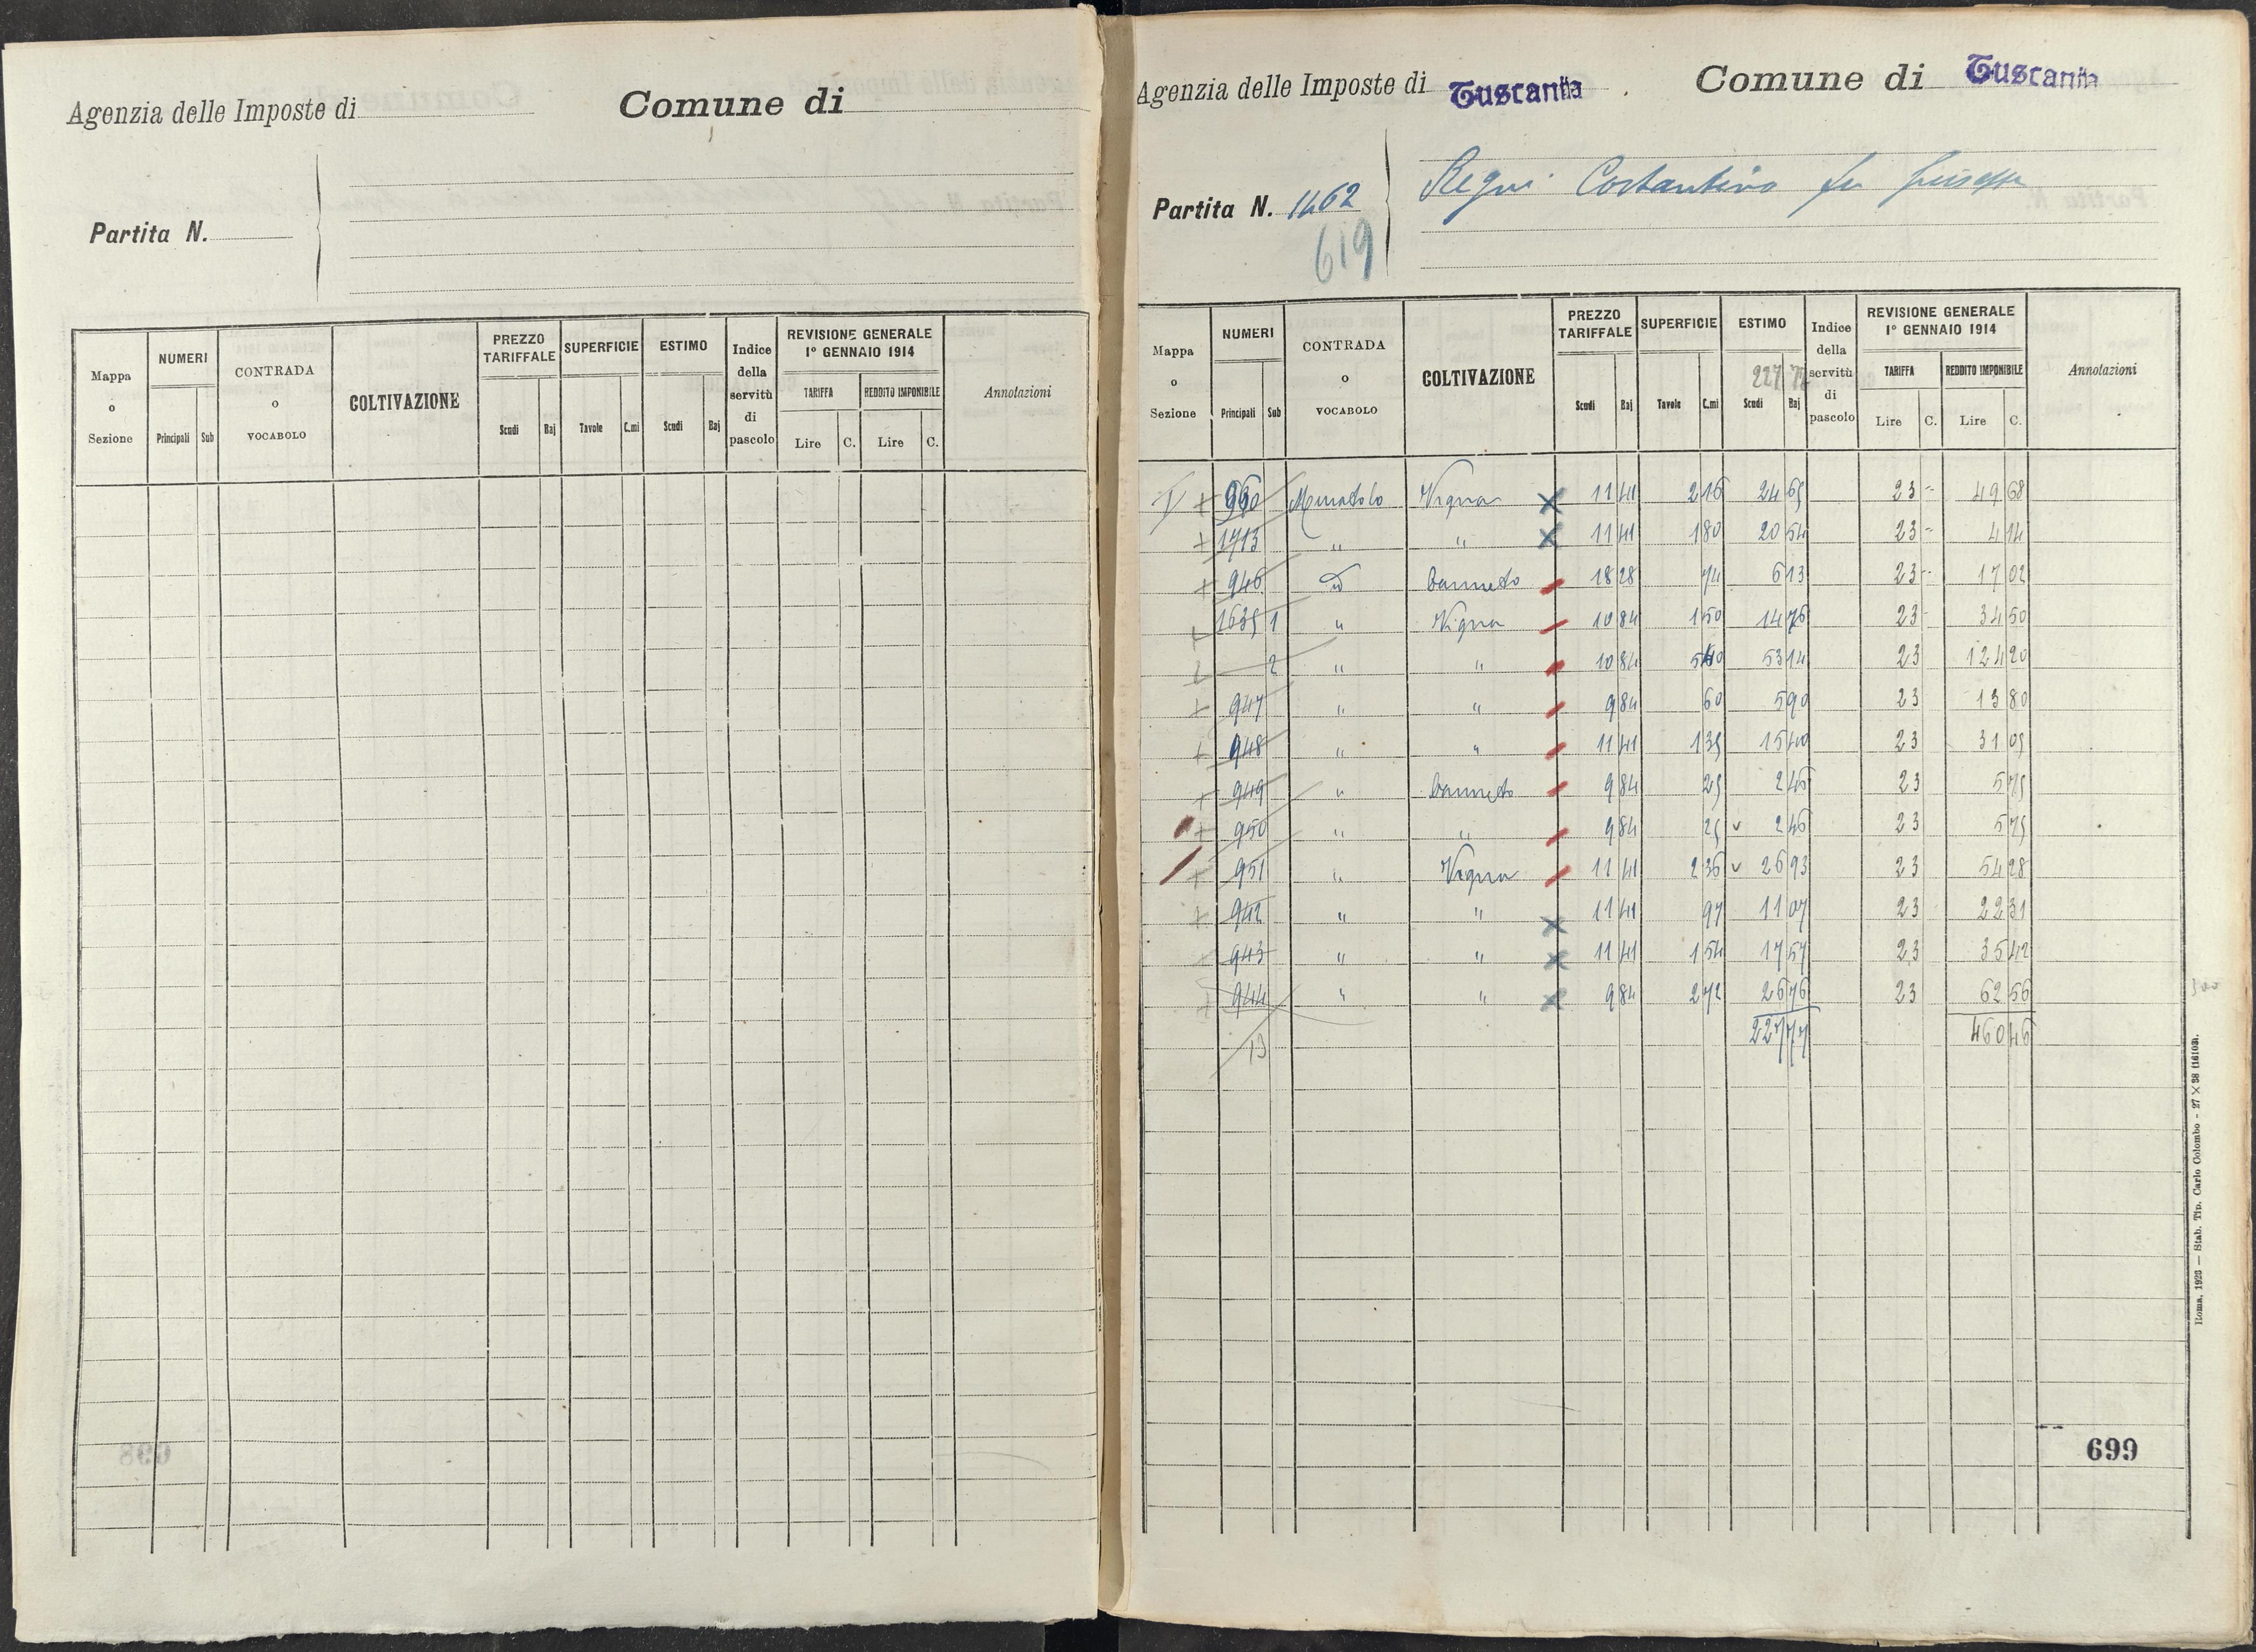 Agenzia delle Imposte di
Comune di
Partita N.
Mappa o Sezione
NUMERI
Principali Sub
CONTRADA o VOCABOLO
COLTIVAZIONE
PREZZO TARIFFALE
Scudi Baj
SUPERFICIE
Tavole C.mi
ESTIMO
Scudi Baj
Indice della servitù di pascolo
REVISIONE GENERALE 1° GENNAIO 1914
TARIFFA
Lire C.
REDDITO IMPONIBILE
Lire C.
Annotazioni
Agenzia delle Imposte di Tuscania
Comune di Tuscania
Partita N. 1462
619
Regni Costantino fu Giuseppe
Mappa o Sezione
NUMERI
Principali Sub
CONTRADA o VOCABOLO
COLTIVAZIONE
PREZZO TARIFFALE
Scudi Baj
SUPERFICIE
Tavole C.mi
ESTIMO
227 77
Scudi Baj
Indice della servitù di pascolo
REVISIONE GENERALE 1° GENNAIO 1914
TARIFFA
Lire C.
REDDITO IMPONIBILE
Lire C.
Annotazioni
+ 960 Vigna X 11 41 2 16 24 65 23 - 49 68
+ 1713 " " X 11 41 1 80 20 54 23 - 4 14
+ 946 Canneto 18 28 74 6 13 23 - 17 02
1635 1 " Vigna 10 84 1 50 14 76 23 - 34 50
2 " " 10 84 5 40 53 14 23 124 20
+ 947 " " 9 84 60 5 90 23 13 80
+ 948 " " 11 41 1 35 15 40 23 31 05
+ 949 " Canneto 9 84 25 2 46 23 5 75
+ 950 " " 9 84 25 v 2 46 23 5 75
+ 951 " Vigna 11 41 2 36 v 26 93 23 54 28
+ 942 " " X 11 41 97 11 07 23 22 31
+ 943 " " X 11 41 1 54 17 57 23 35 42
+ 944 " " X 9 84 2 72 26 76 23 62 56
13 227 77 460 46
699
Roma, 1923 — Stab. Tip. Carlo Colombo - 27 X 38 (16103).